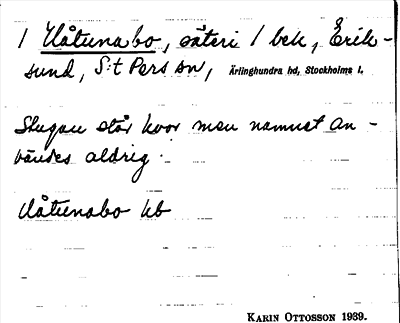 / Håtunabo, säteri / bek, Erik-
sund, S:t Pers sn, Ärlinghundra hd, Stockholms l.
Stugan står kvar men namnet an-
vändes aldrig.
Håtunabo hb
KARIN OTTOSSON 1939.